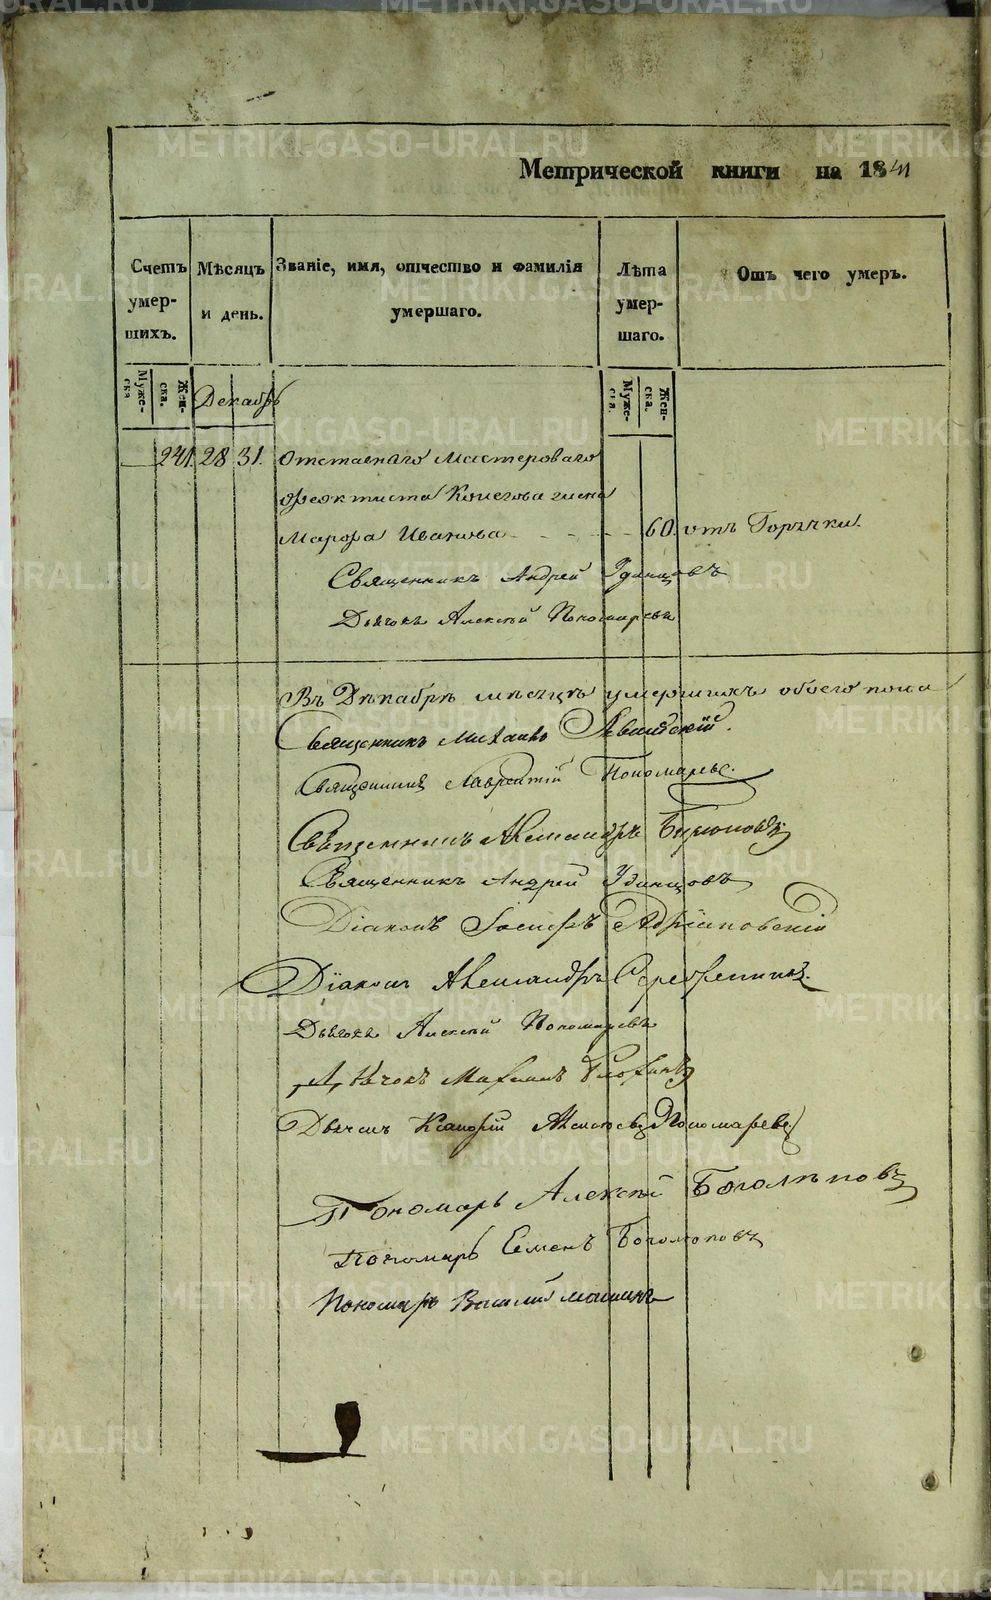 Метрической книги на 1841
Счетъ умер-шихъ.
Мѣсяцъ и день.
Званіе, имя, отчество и фамилія умершаго.
Лѣта умер-шаго.
Отъ чего умеръ.
Муже-ска
Жен-ска.
Декабрь
Муже-ска.
Жен-ска.
241. 28 31. Отставнаго Мастероваго
Феоктиста жена
Марфа Иванова 60. отъ Горячки.
Священникъ Андрей Удинцовъ
Дьячокъ Алексѣй Пономаревъ
Въ Декабрѣ мѣсяцѣ умершихъ обоего пола
Священникъ Михаилъ
Священникъ Лаврентій Пономаревъ.
Священникъ Александръ
Священникъ Андрей Удинцовъ
Діаконъ Іосифъ Адріановскій
Діаконъ Александръ Серебренниковъ.
Дьячокъ Алексѣй Пономаревъ
Дьячокъ Максимъ
Дьячекъ Пономаревъ
Пономарь Алексѣй Боголѣповъ
Пономарь Семенъ Боголюповъ
Пономарь Василий
METRIKI.GASO-URAL.RU